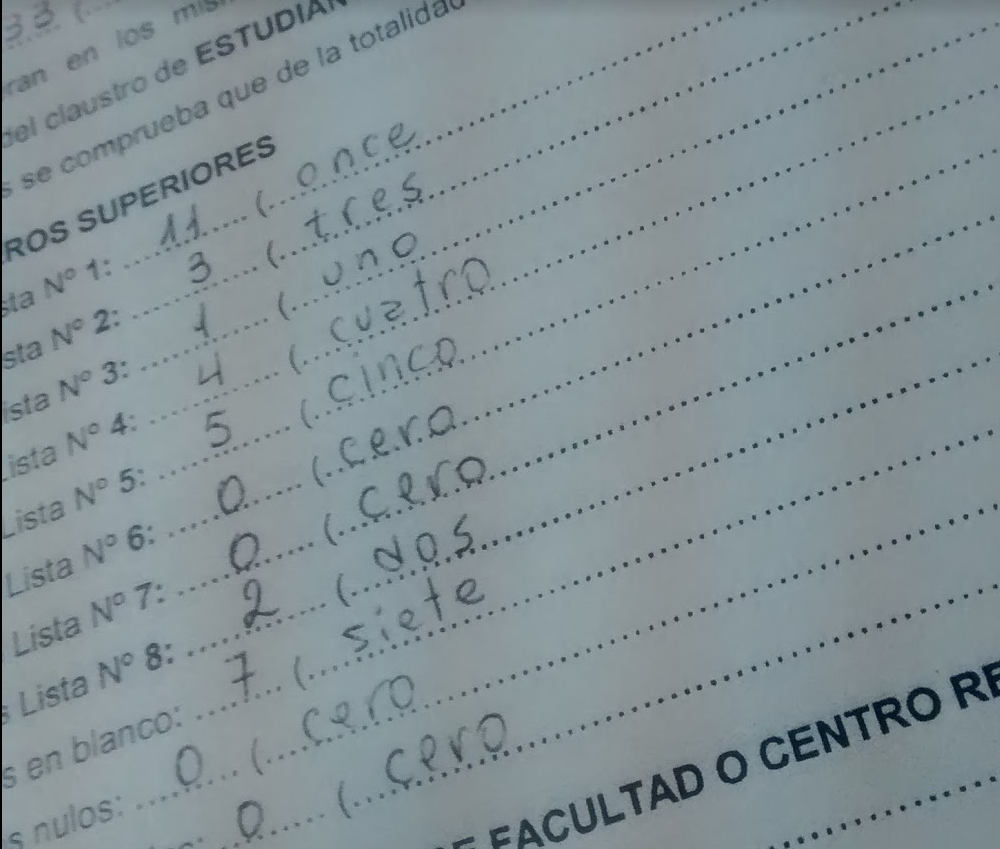 33 (
ran en los mis
del claustro de ESTUDIAN
s se comprueba que de la totalidad
ROS SUPERIORES
sta Nº 1: 11 ( once
sta Nº 2: 3 ( tres
ista Nº 3: 1 ( uno
Lista Nº 4: 4 ( cuatro
Lista Nº 5: 5 ( cinco
Lista Nº 6: 0 ( cero
Lista Nº 7: 0 ( cero
s Lista Nº 8: 2 ( dos
s en blanco: 7 ( siete
s nulos: 0 ( cero
0 ( cero
E FACULTAD O CENTRO RE